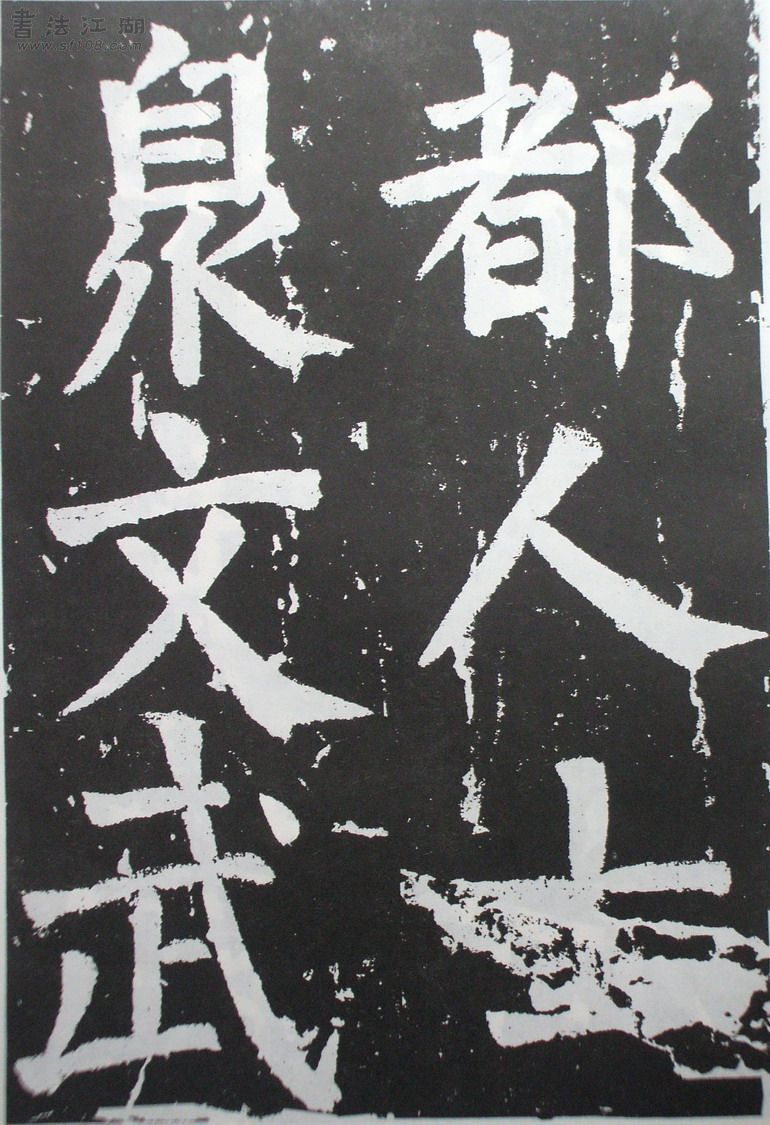 書法江湖
www.sf108.com
都人士
臮文武